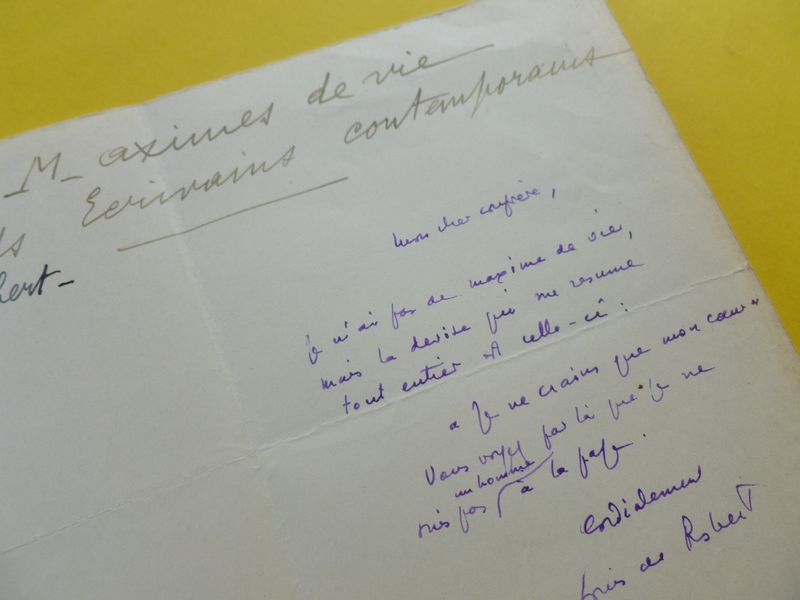 M_aximes de vie
ds Ecrivains contemporains
bert_
Mon cher confrère,
Je n'ai pas de maxime de vie,
mais la devise qui me résume
tout entier est celle-ci :
« Je ne crains que mon cœur »
Vous voyez par là que je ne
un homme
suis pas à la page.
Cordialement
ouis de Robert